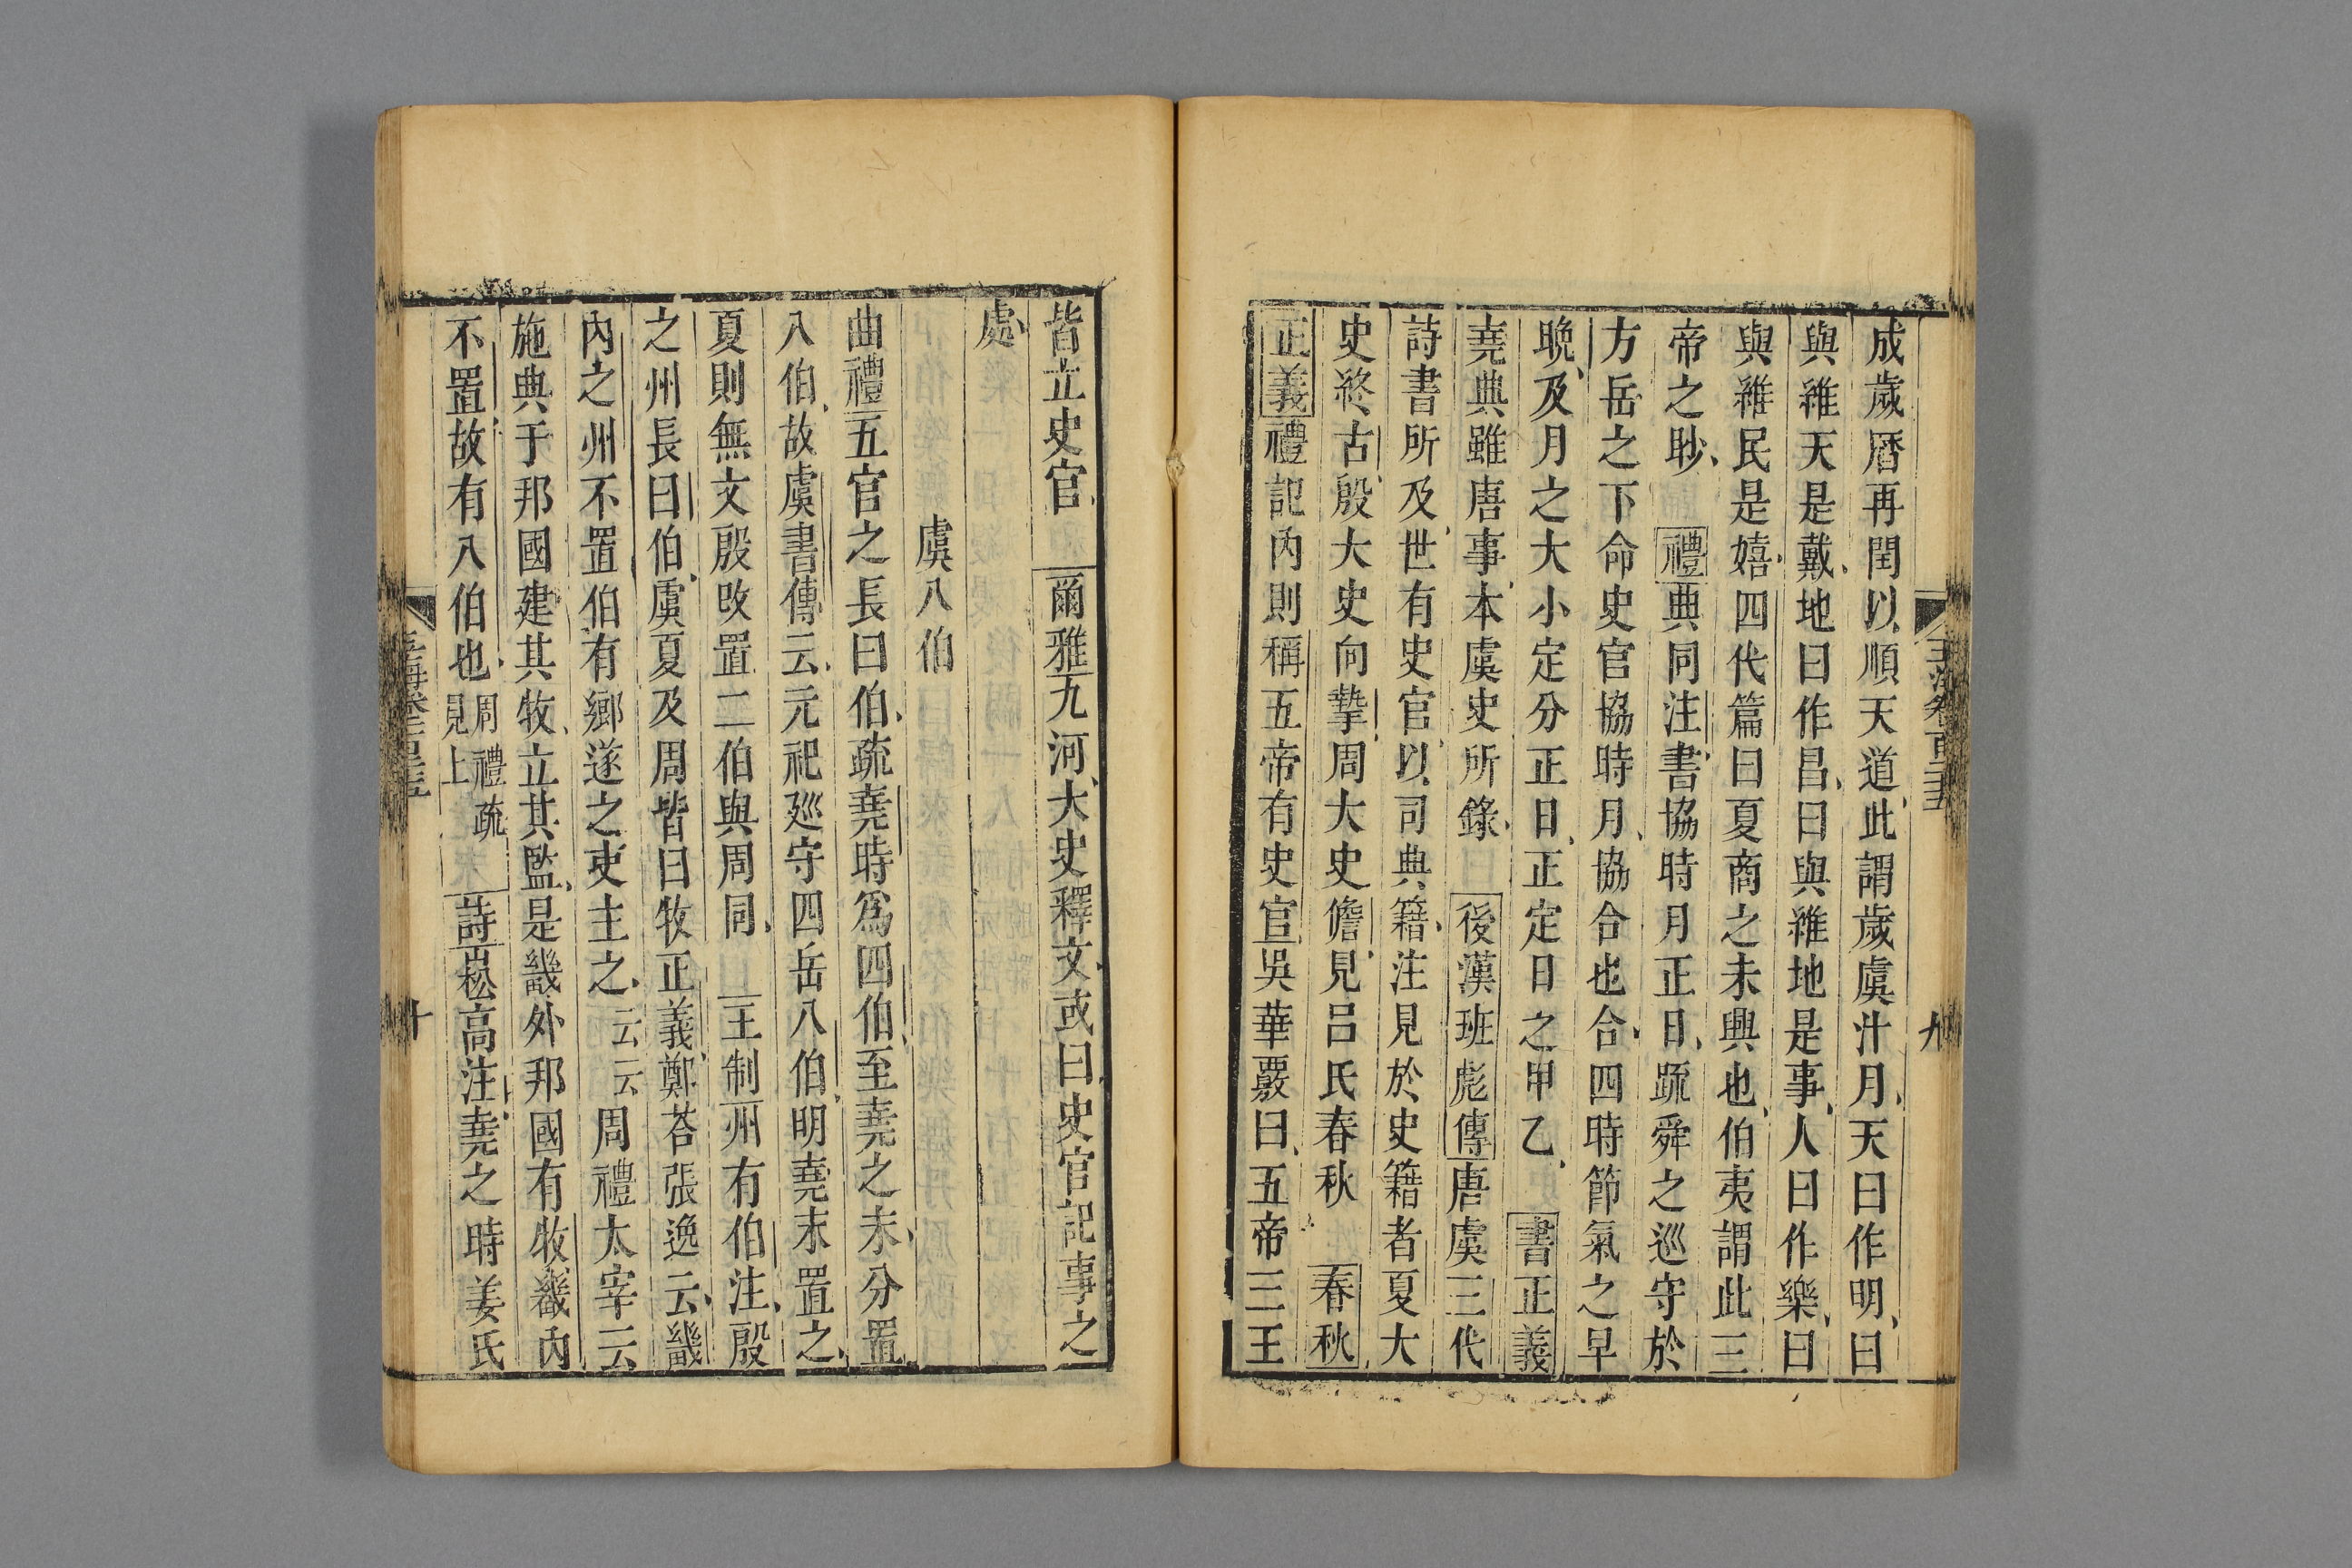 成歲曆再閏以順天道此謂歲虞汁月天曰作明曰
與維天是戴地曰作昌曰與維地是事人曰作樂曰
與維民是嬉四代篇曰夏商之未興也伯夷謂此三
帝之眇禮典同注書協時月正日疏舜之巡守於
方岳之下命史官協時月協合也合四時節氣之早
晚及月之大小定分正日正定日之甲乙書正義
堯典雖唐事本虞史所錄後漢班彪傳唐虞三代
詩書所及世有史官以司典籍注見於史籍者夏大
史終古殷大史向摯周大史儋見吕氏春秋春秋
正義禮記內則稱五帝有史官吳華覈曰五帝三王
皆立史官爾雅九河大史釋文或曰史官記事之
處
虞八伯
曲禮五官之長曰伯疏堯時爲四伯至堯之末分置
八伯故虞書傳云元祀廵守四岳八伯明堯末置之
夏則無文殷改置二伯與周同王制州有伯注殷
之州長曰伯虞夏及周皆曰牧正義鄭荅張逸云畿
內之州不置伯有鄉遂之吏主之云云周禮太宰云
施典于邦國建其牧立其監是畿外邦國有牧畿內
不置故有八伯也周禮疏見上詩崧高注堯之時姜氏